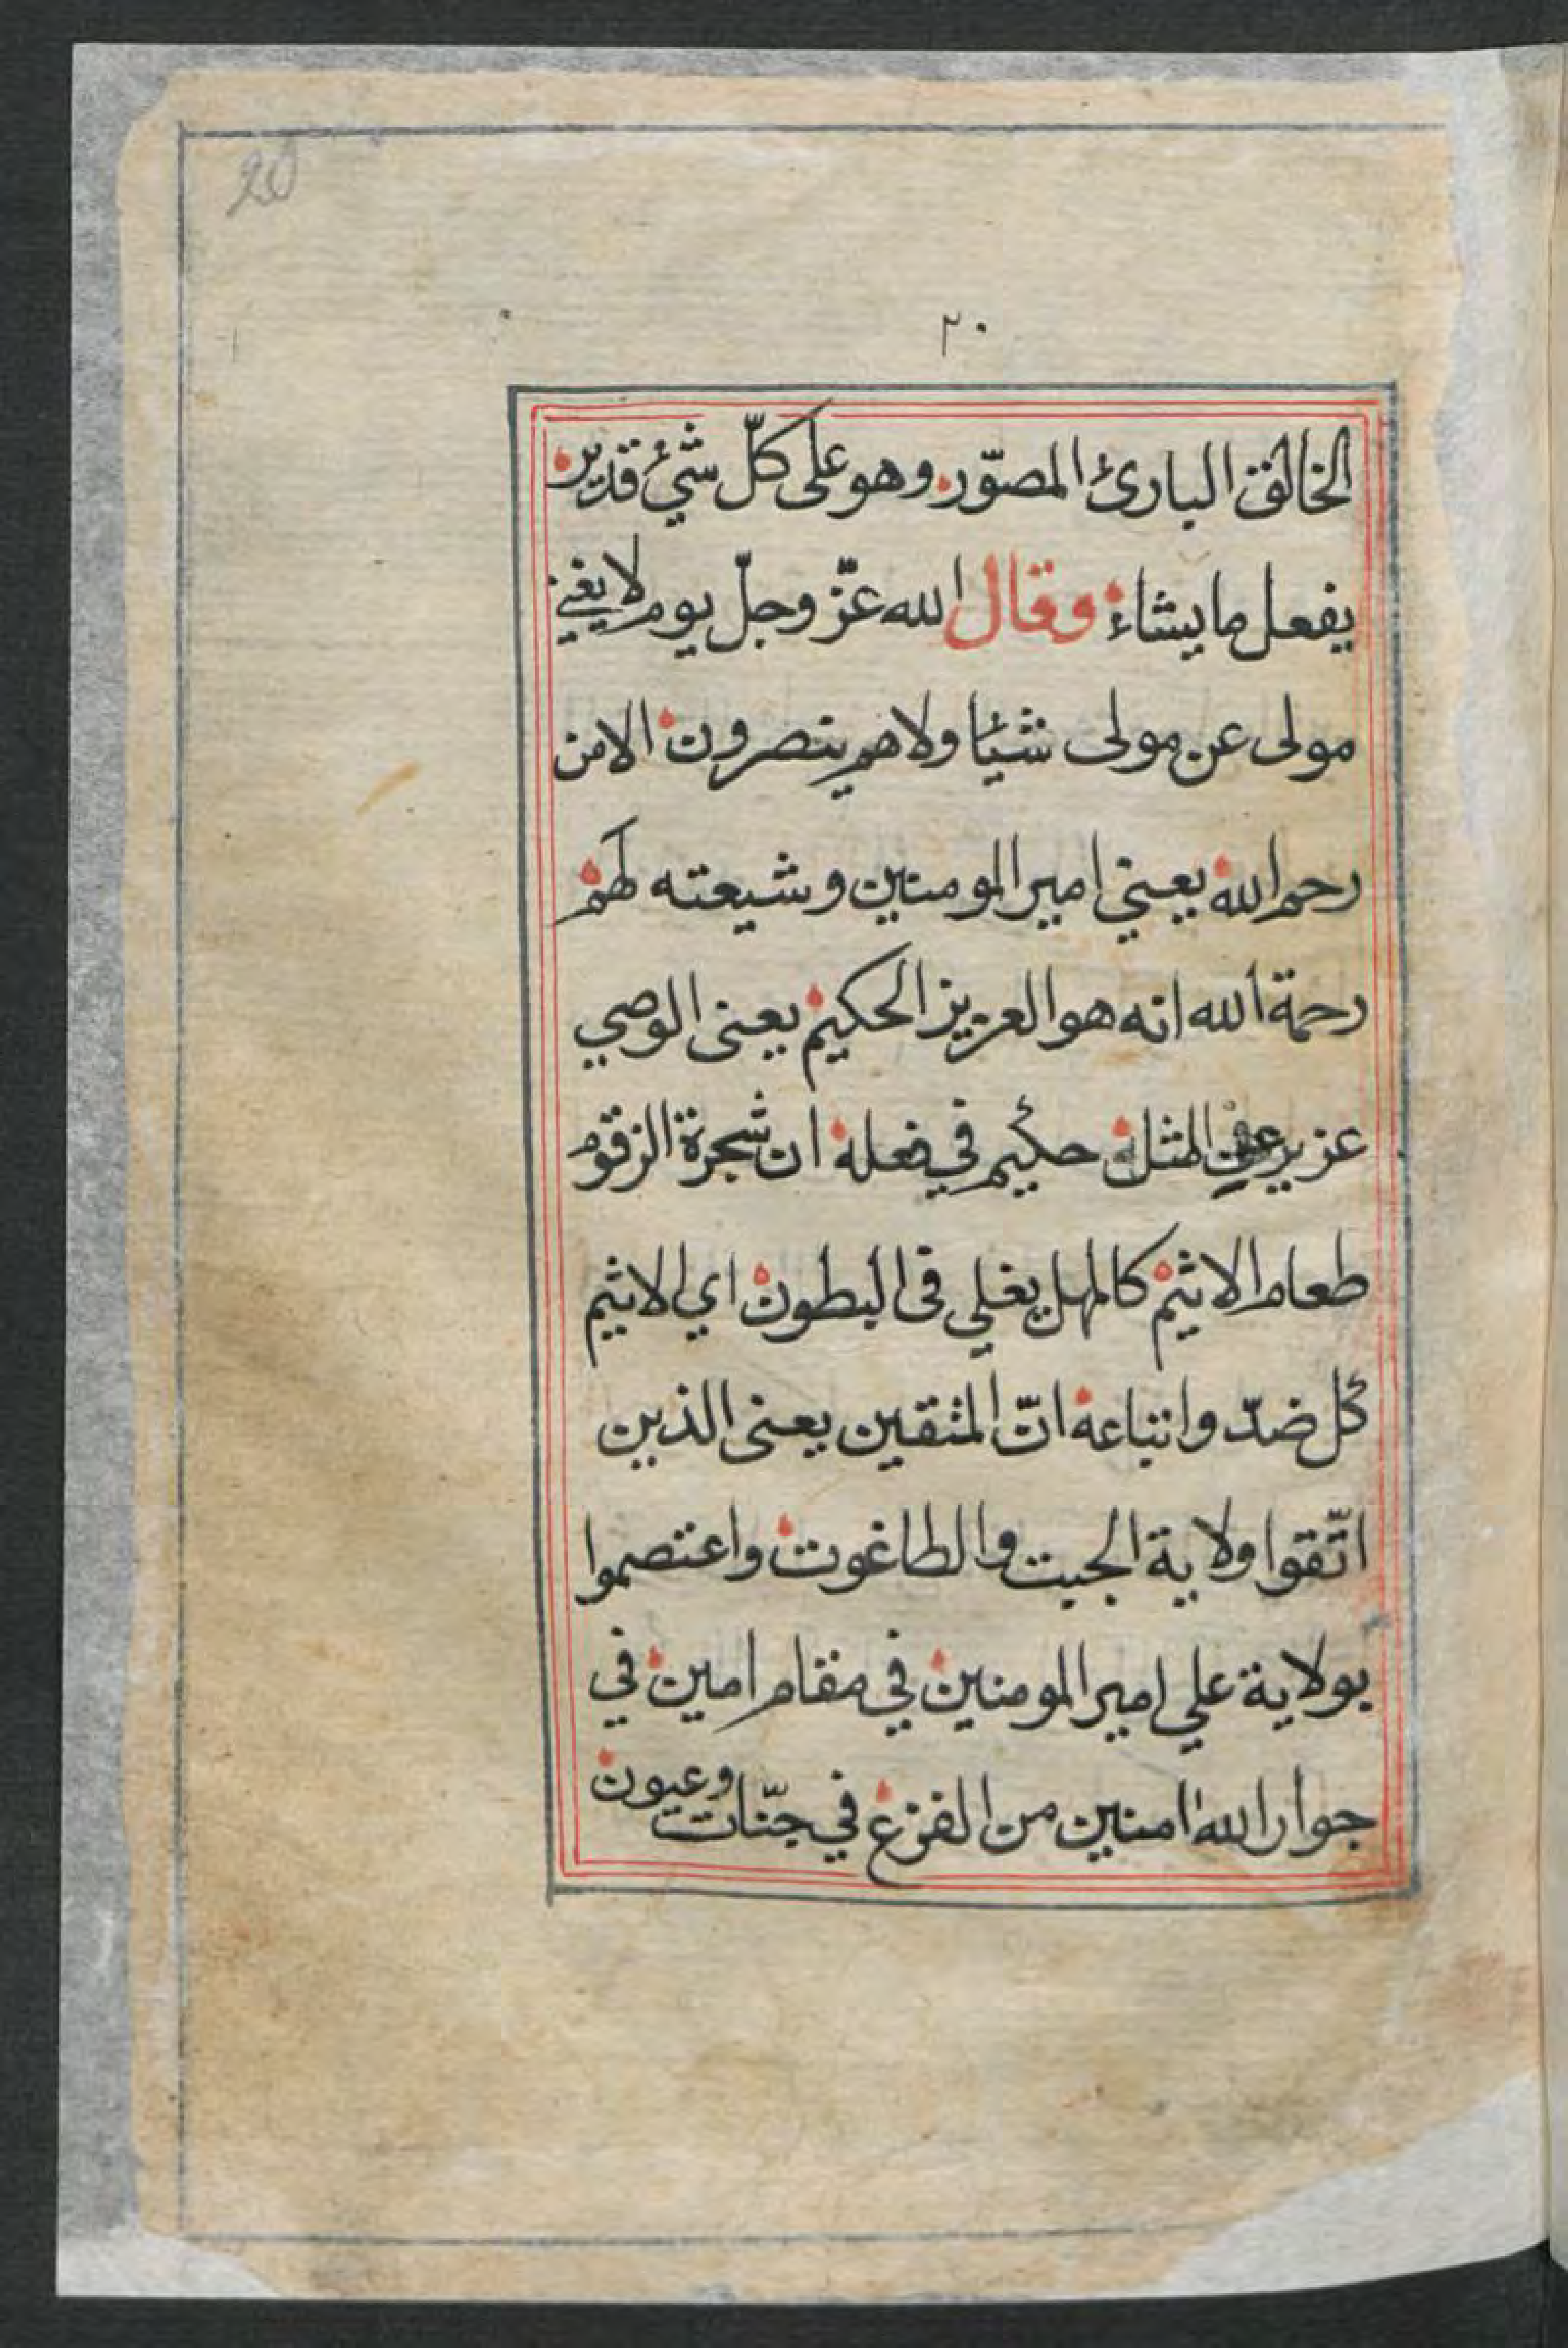 20
٢٠
الخالق البارئ المصوّر وهو على كلّ شئ قدير
يفعل ما يشاء وقال الله عزّ وجلّ يوم لا يغني
مولى عن مولى شيئا ولا هم ينصرون الا من
رحم الله يعني امير المومنين وشيعته لهم
رحمة الله انه هو العزيز الحكيم يعنى الوصي
عزيز عن المثل حكيم في فعله ان شجرة الزقوم
طعام الاثيم كالمهل يغلي فى البطون اي الاثيم
كل ضدّ واتباعه انّ المتقين يعنى الذين
اتّقوا ولاية الجبت والطاغوت واعتصموا
بولاية علي امير المومنين في مقام امين في
جوار الله امنين من الفزع في جنّات وعيون